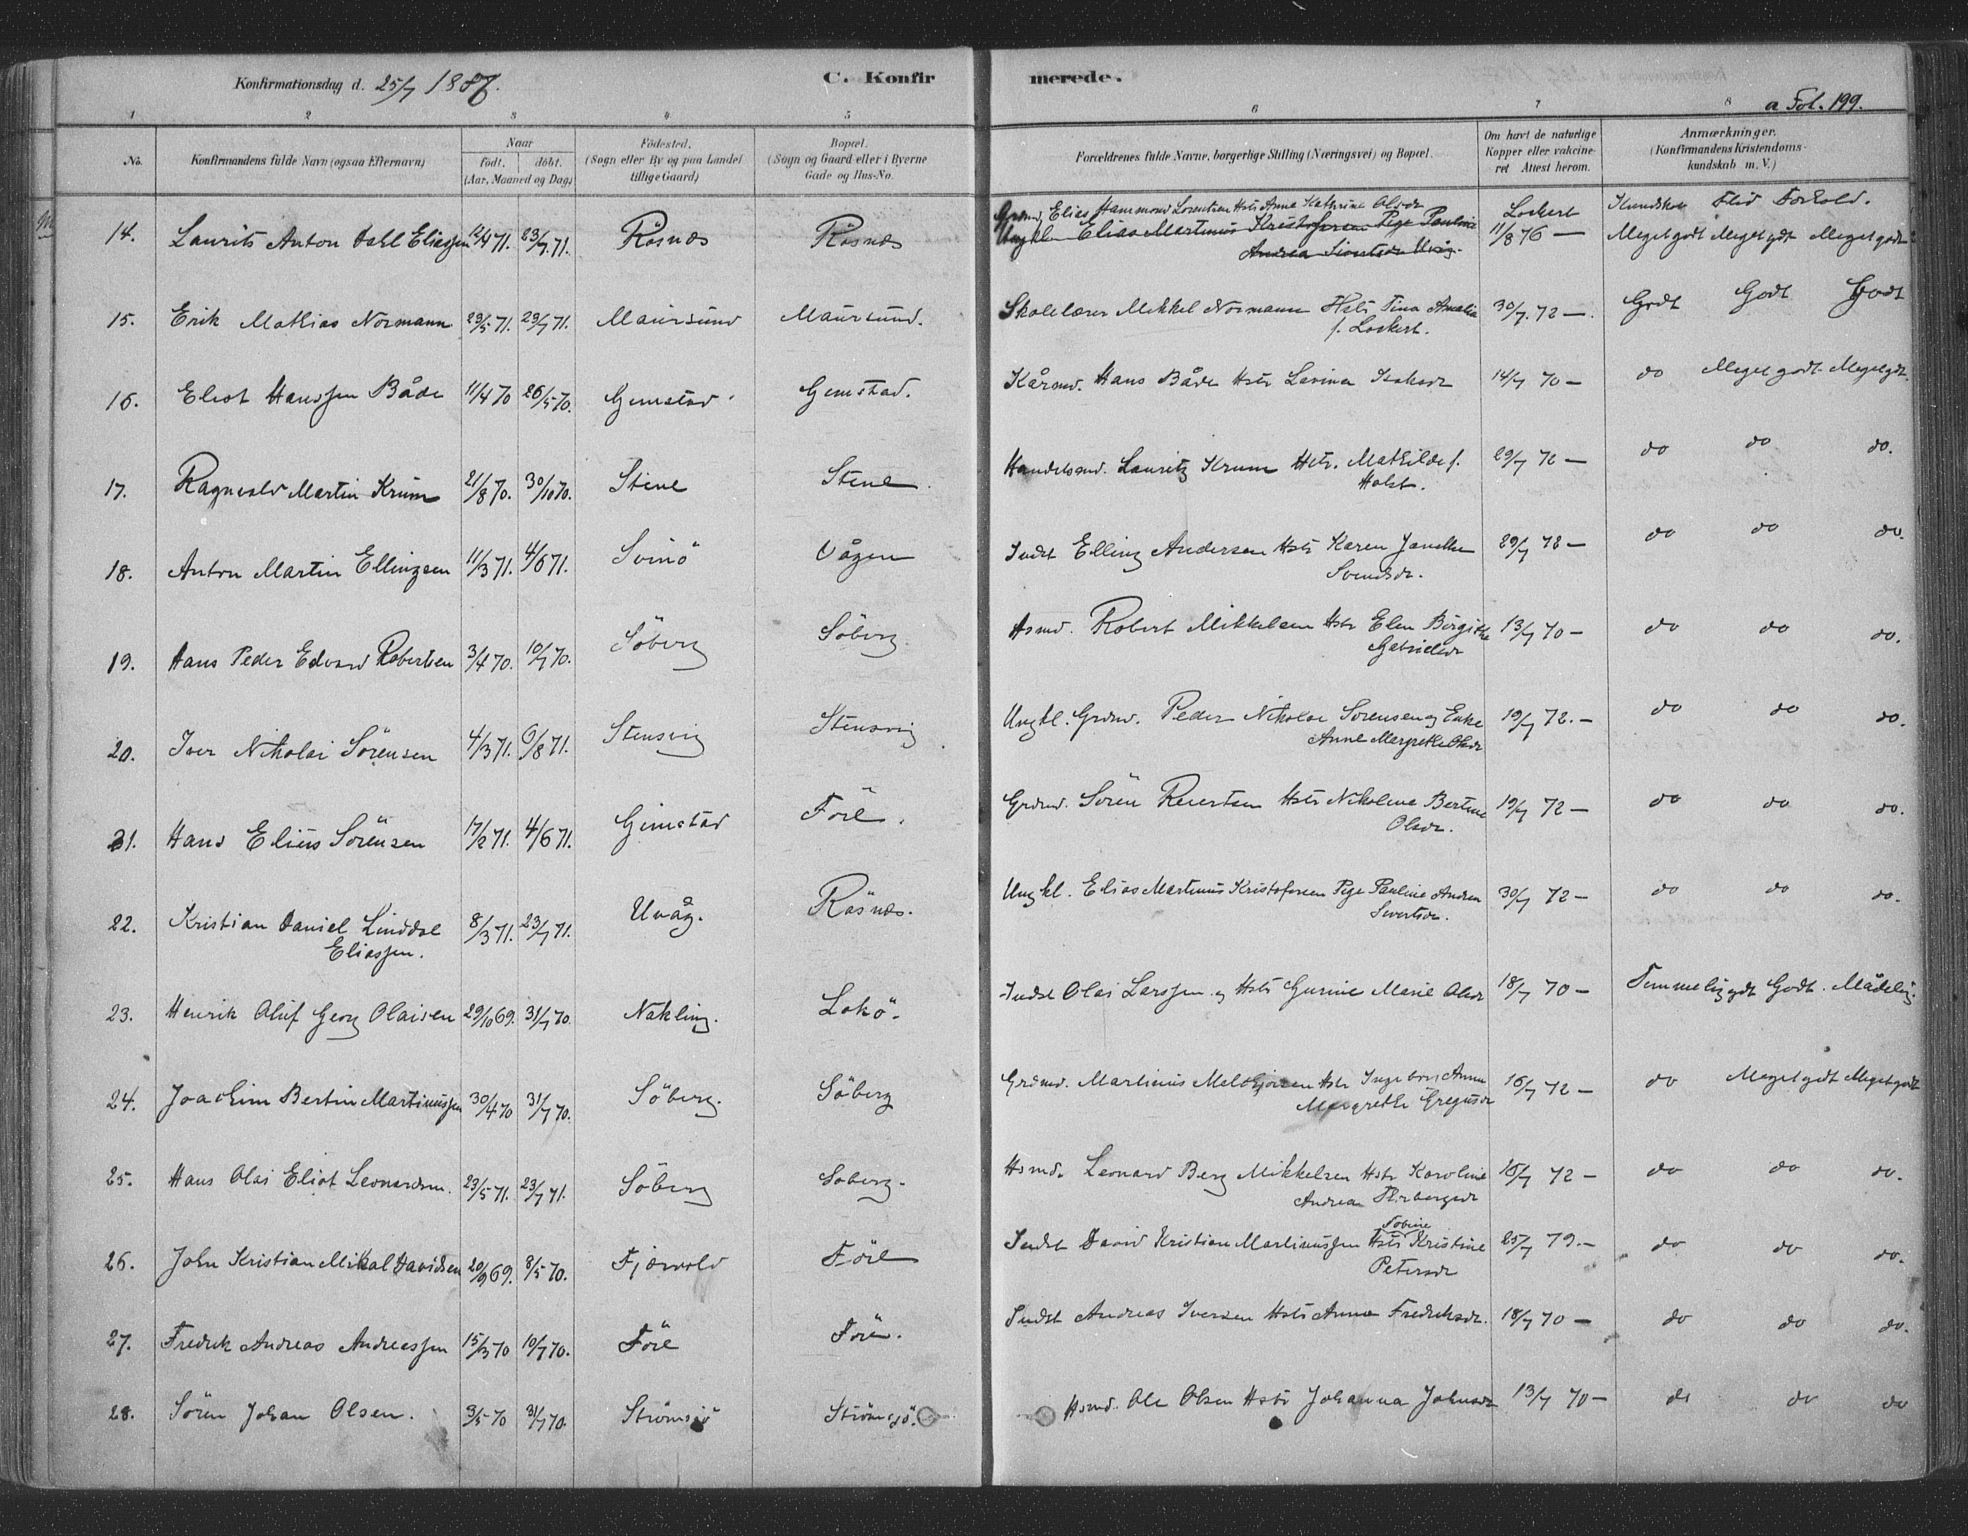 Konfirmationsdag d. 25/7 1886. C. Konfir merede.
a Fol. 199.
1 2 3 4 5 6 7 8
No. Konfirmandens fulde Navn (ogsaa Efternavn) Naar født. døbt. (Aar, Maaned og Dag.) Fødested. (Sogn eller By og paa Landet tillige Gaard) Bopæl. (Sogn og Gaard eller i Byerne Gade og Hus-No. Forældrenes fulde Navne, borgerlige Stilling (Næringsvei) og Bopæl. Om havt de naturlige Kopper eller vakcineret Attest herom. Anmærkninger. (Konfirmandens Kristendomskundskab m. V.)
Grdmd, Elias Hammond Lorentsen Hstr Anna Kathrine Olsdr Lockert Kundskab Flid Forhold.
14. Laurits Anton Dahl Eliassen 12/4 71. 23/7 71. Råsnæs Råsnæs Ungkl. Elias Martinus Kristofersen Pige Pauline 11/8 76 — Meget godt Meget gdt Meget godt
Andrea Sivertsdr Uvåg.
15. Erik Mathias Normann 29/5 71. 23/7 71. Maursund Maursund. Skolelærer Mikkel Normann Hstr Tina Amalia 30/7. 72 —. Godt Godt Godt
f. Lockert.
16. Eliot Hanssen Både 11/4 70 26/5 70. Gimstad Gimstad. Kårmd. Hans Både Hstr Lavina Isaksdr 14/7 70 — do Meget godt Meget gdt.
17. Ragnvald Martin Krum 21/8 70. 30/10 70. Stene Stene. Handelsmd. Lauritz Krum Hstr. Mathilde f. 29/7 72 — do do do.
Holst.
18. Anton Martin Ellingsen 11/3 71. 4/6 71. Svinö Vågen Indst Elling Andersen Hstr Karen Janethe 29/7 72 — do do do.
Svendsdr.
19. Hans Peder Edvard Robertsen 3/4 70. 10/7 70. Söberg Söberg. Hsmd. Robert Mikkelsen Hstr Elen Birgitte 13/7 70 — do do do.
Gabrielsdr
20. Iver Nikolai Sörensen 4/3 71. 6/8 71. Stensvig Stensvig Ungkl. Grdmd. Peder Nikolai Sörensen og Enke 19/7 72. — do do do.
Anne Margrethe Olsdr
21. Hans Elius Sörensen 17/2 71. 4/6 71. Gimstad Före. Grdmd. Sören Reiertsen Hstr Nikoline Bertine 19/7 72 — do do do.
Olsdr.
22. Kristian Daniel Linddal 8/3 71. 23/7 71. Uvåg. Råsnæs. Ungkl. Elias Martinus Kristofersen Pige Pauline Andrea 30/7 72 — do do do.
Eliassen. Sivertsdr.
23. Henrik Oluf Georg Olaisen 29/10 69. 31/7 70. Nakling. Lokö. Indst Olai Larssen og Hstr Gurine Marie Olsdr 18/7 70 — Temmelig gdt Godt. Mådelig.
24. Joachim Bertin Martinussen 30/4 70 31/7 70. Söberg. Söberg Grdmd. Martinus Melchjorsen Hstr Ingebor Anna 16/7 72 — do Meget gdt Meget godt
Margrethe Gregusdr
25. Hans Olai Eliot Leonardsen. 23/5 71. 23/7 71. Söberg Söberg. Hsmd. Leonard Berg Mikkelsen Hstr Karoline 16/7 72 — do do do.
Andrea Thorbergsdr
26. John Kristian Mikal Davidsen 20/9 69. 8/5 70. Fjærvold Före Indst David Kristian Martinussen Hstr Tobine Kristine 25/7 79. — do do do.
Petersdr
27. Fredrik Andreas Andreassen 15/3 70 10/7 70. Före Före. Indst Andreas Iversen Hstr Anna Fredriksdr. 18/7 70 — do do do.
28. Sören Johan Olsen. 3/5 70 31/7 70. Strömsjö Strömsjö. Hsmd. Ole Olsen Hstr Johanna Johnsdr 13/7 70 — do do do